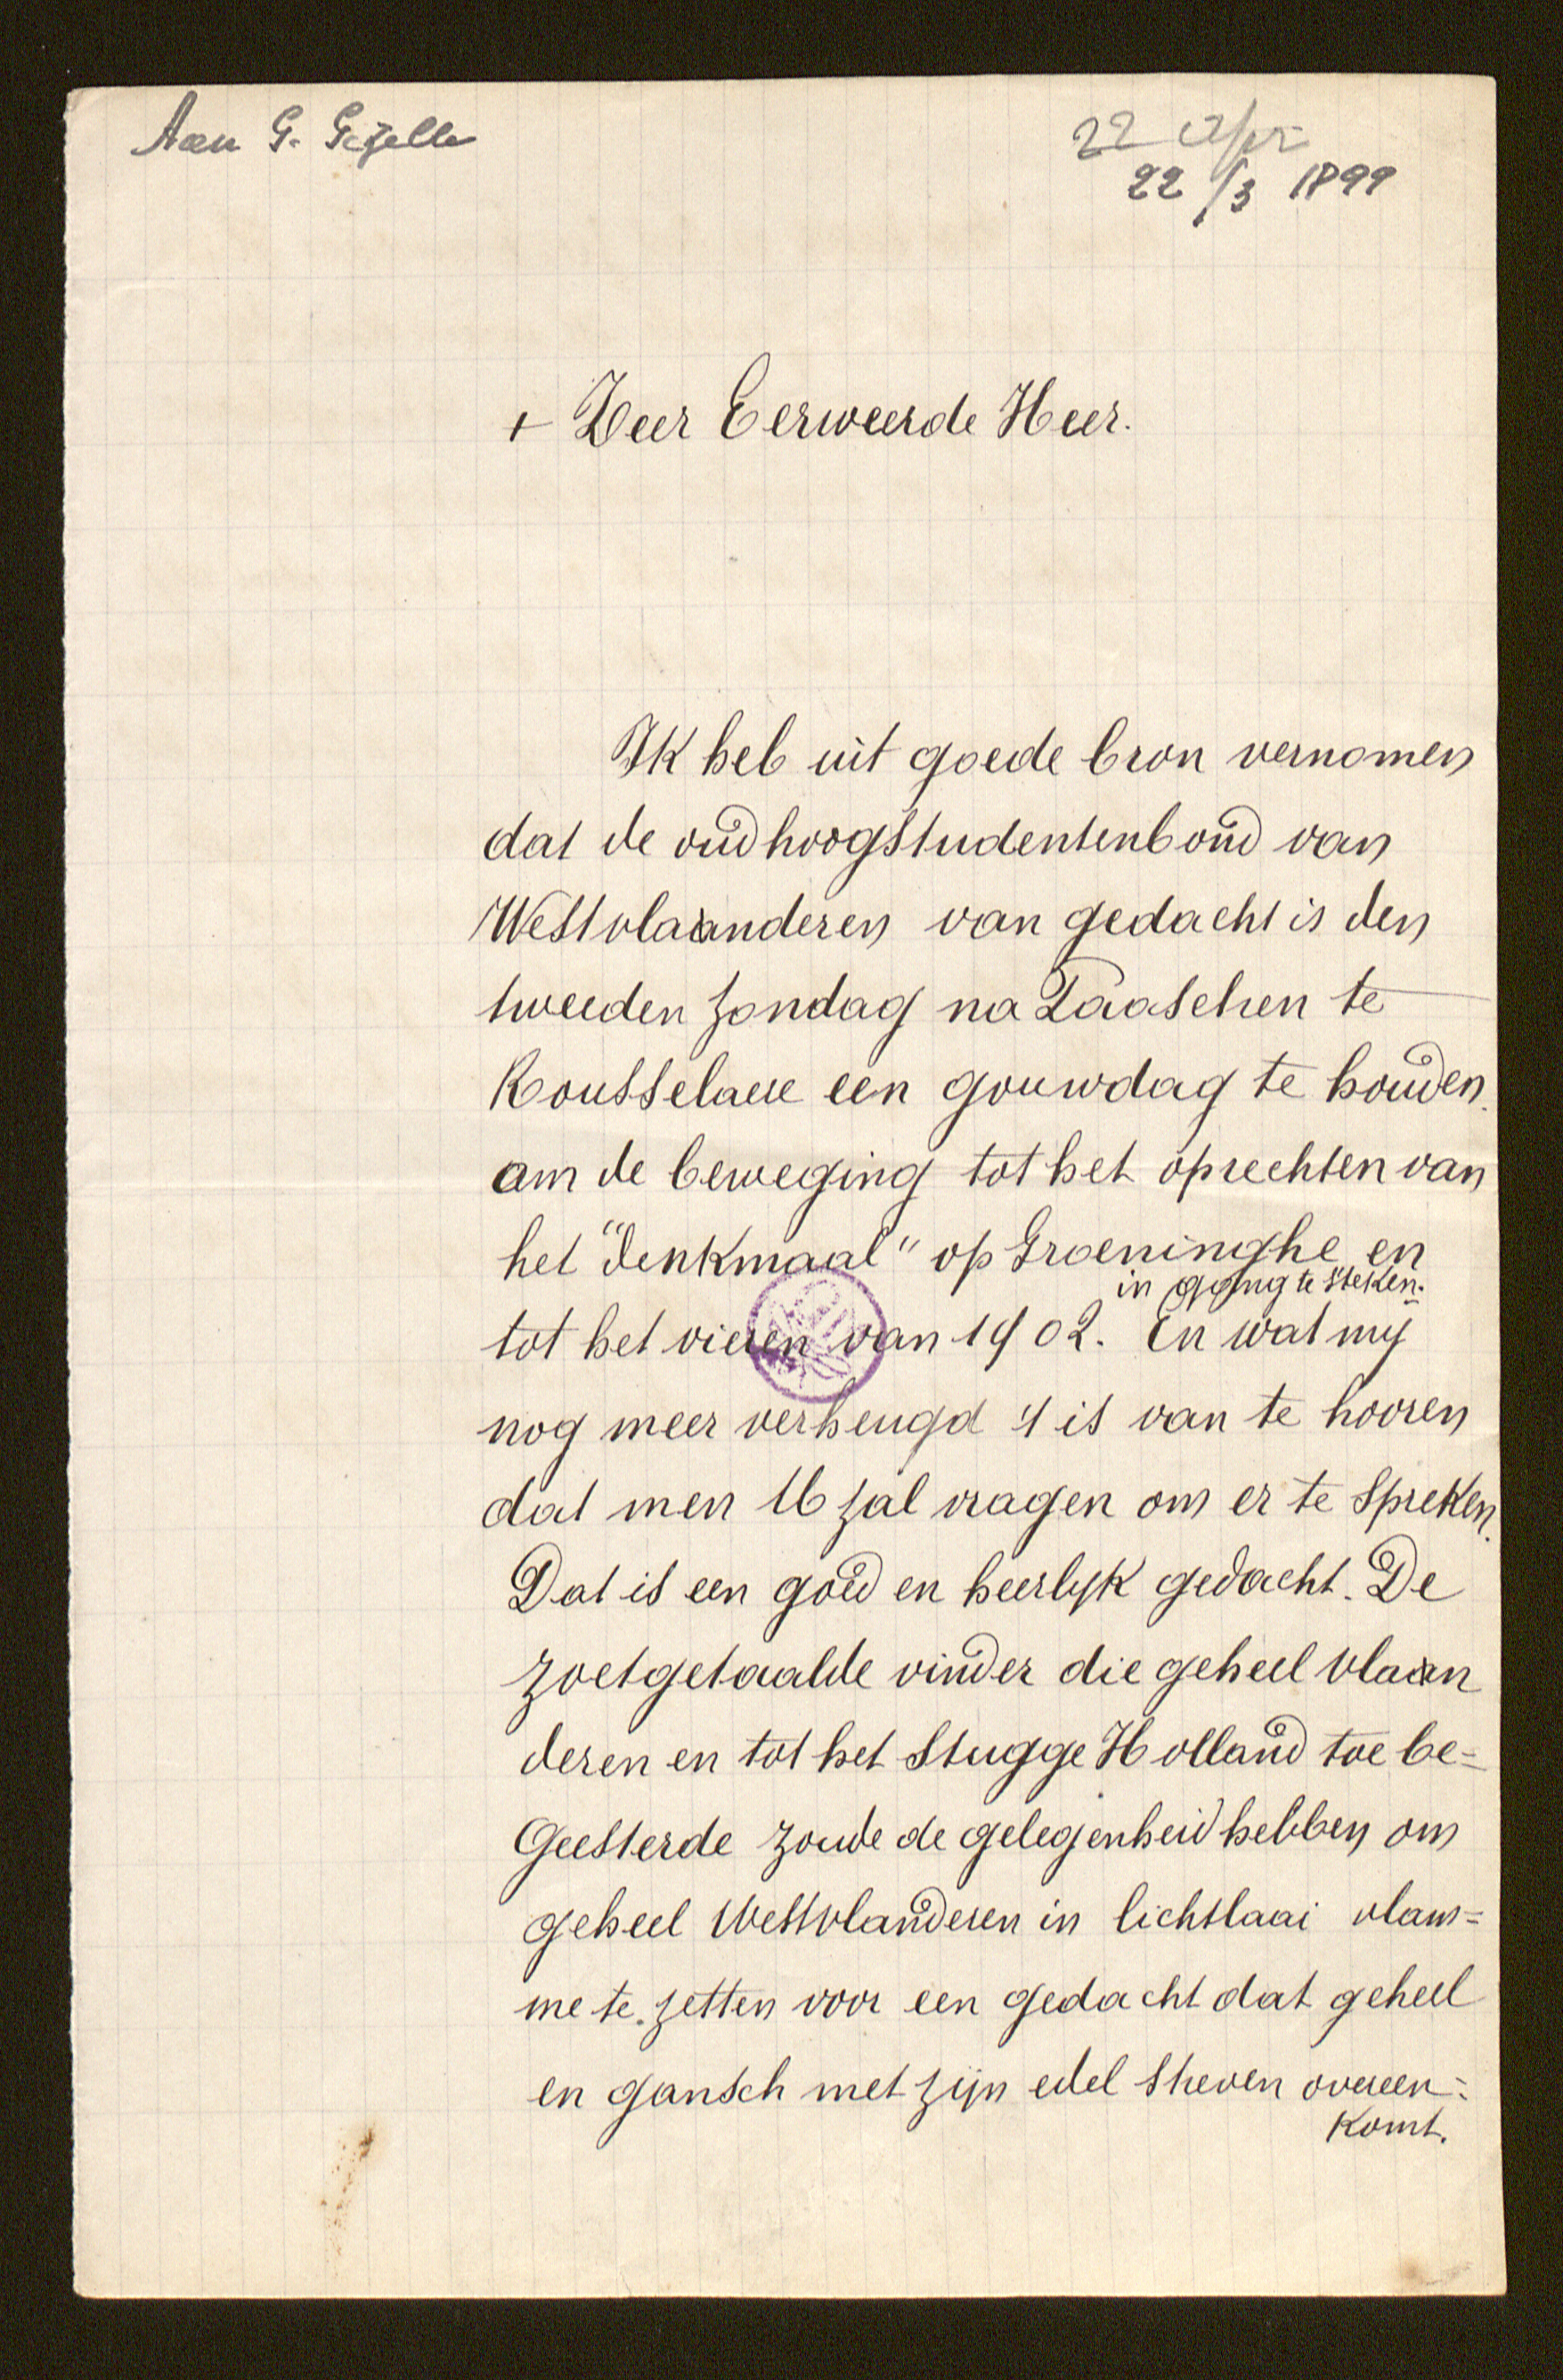 Aan G. Gezelle
22 Apr
22/3 1899
+ Zeer Eerweerde Heer.
Ik heb uit goede bron vernomen
dat de oudhoogstudentenbond van
Westvlaanderen van gedacht is den
tweeden zondag na Paaschen te
Rousselaere een gouwdag te houden.
om de beweging tot het oprechten van
het "denkmaal" op Groeninghe en
in gang te steken.
tot het vieren van 1902. En wat mij
nog meer verheugd 't is van te hooren
dat men U zal vragen om er te spreken.
Dat is een goed en heerlyk gedacht. De
zoetgetaalde vinder die geheel vlaan
deren en tot het stugge Holland toe be=
Geesterde zoude de gelegenheid hebben om
geheel Westvlanderen in lichtlaai vlam=
me te zetten voor een gedacht dat geheel
en gansch met zijn edel streven overeen=
komt.